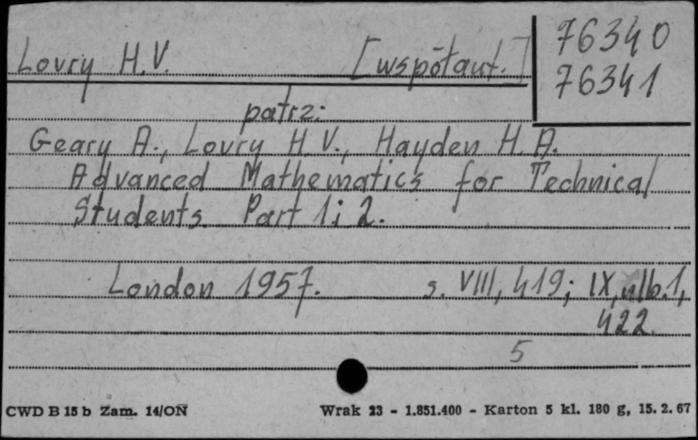 Lovry H.V. [współaut.]
76340
76341
patrz:
Geary A., Lovry H V., Hayden H. A.
Advanced Mathematics for Technical
Students. Part 1 i 2.
London 1957. s. VIII, 419; IX, nlb. 1,
422.
5
CWD B 15 b Zam. 14/ON Wrak 23 - 1.851.400 - Karton 5 kl. 180 g, 15. 2. 67